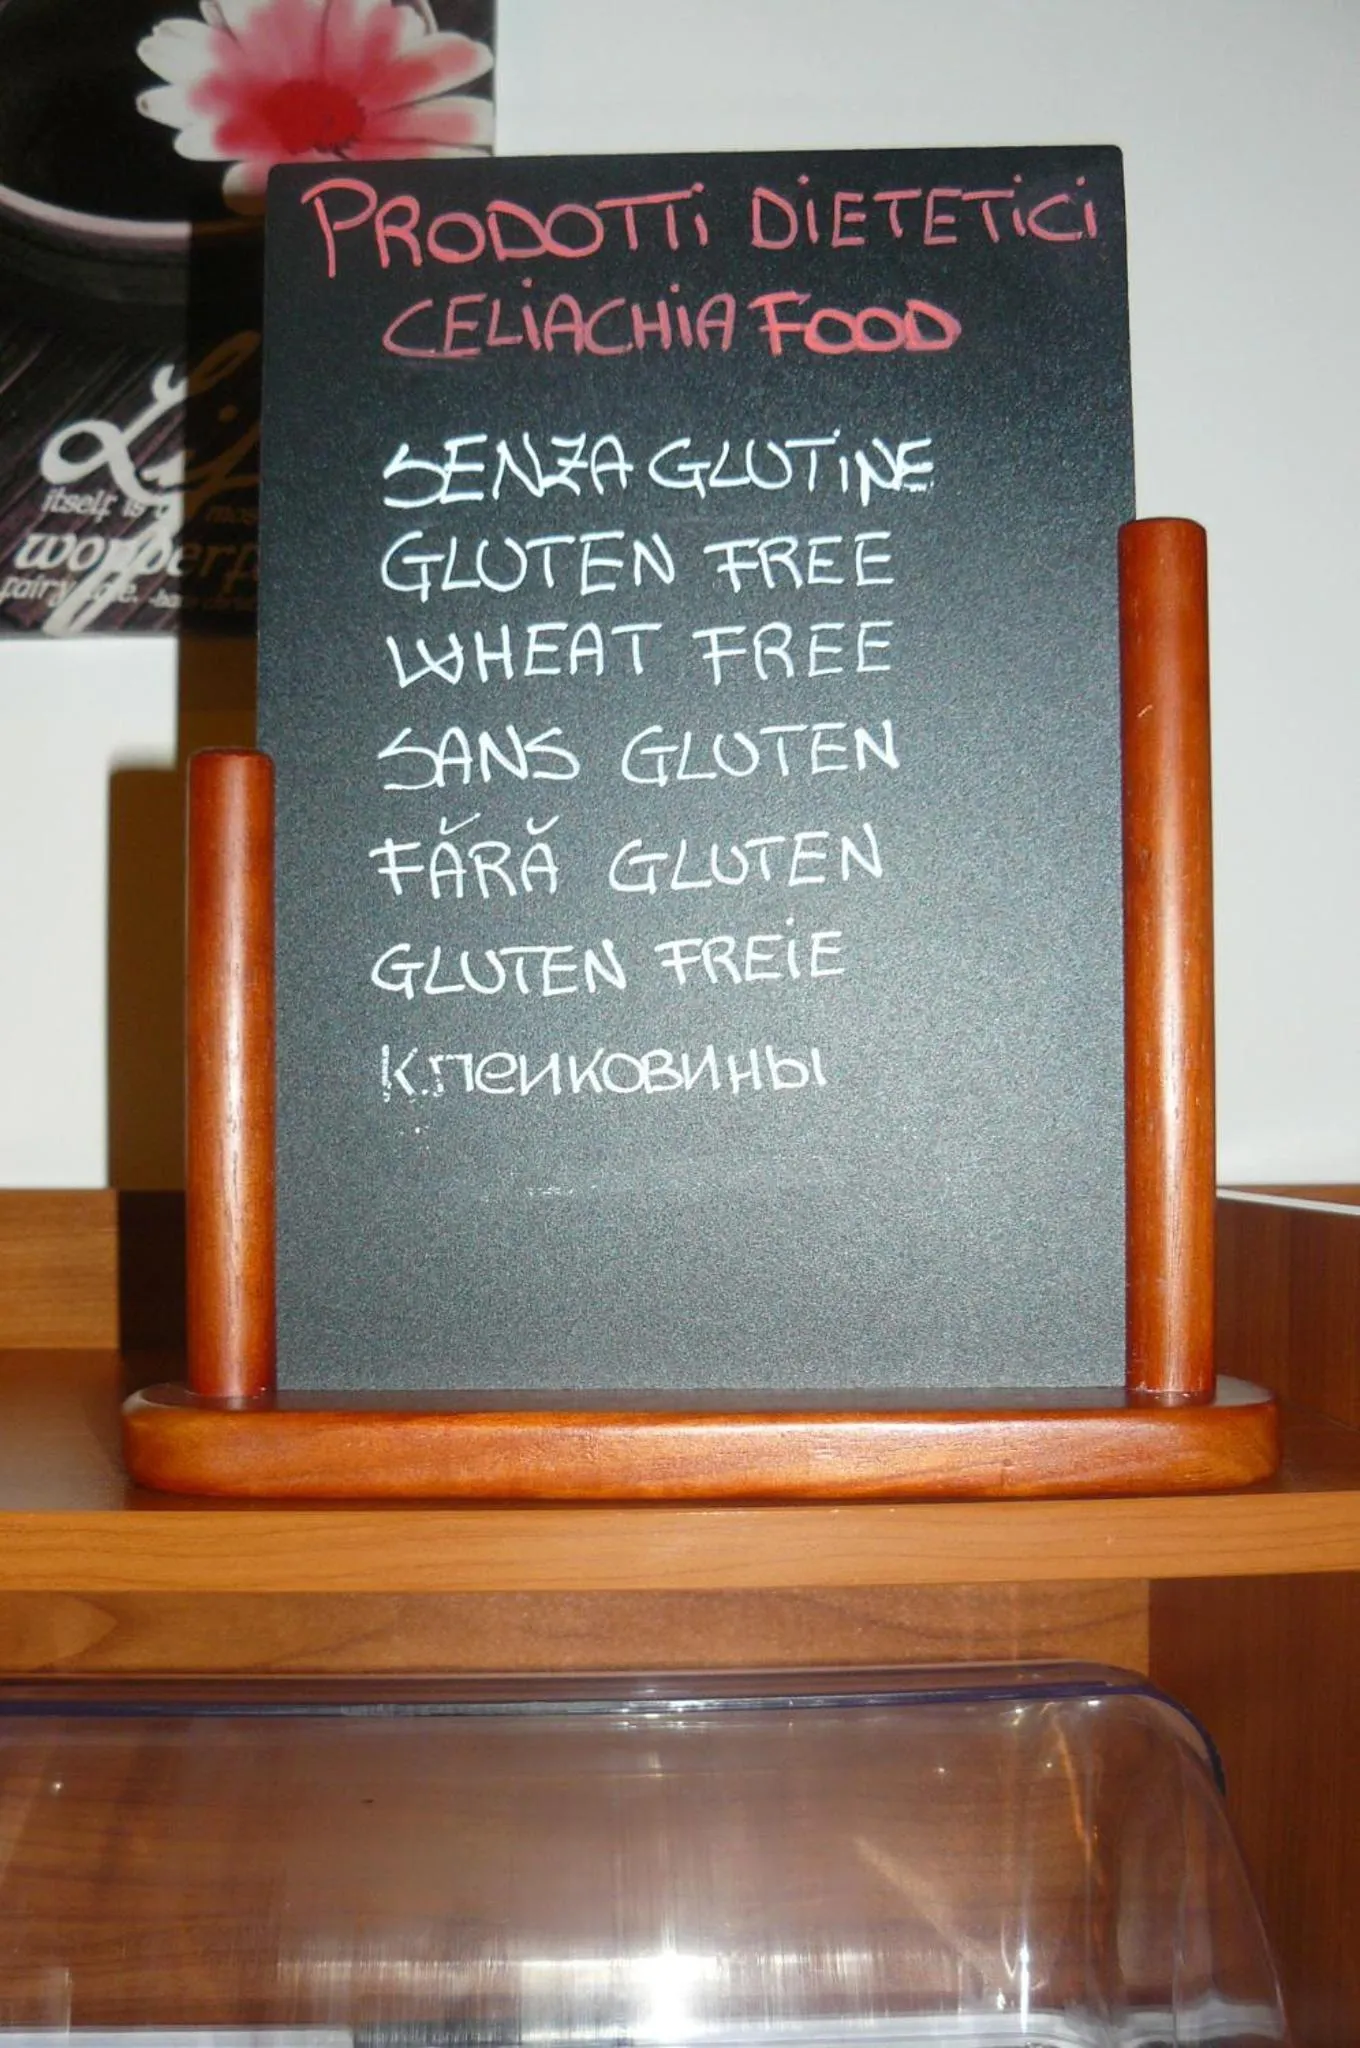 PRODOTTi DiETETiCi
CELiACHiA FOOD
SENZA GLUTiNE
GLUTEN FREE
WHEAT FREE
SANS GLUTEN
FĂRĂ GLUTEN
GLUTEN FREiE
клеиковины
Life
itself is